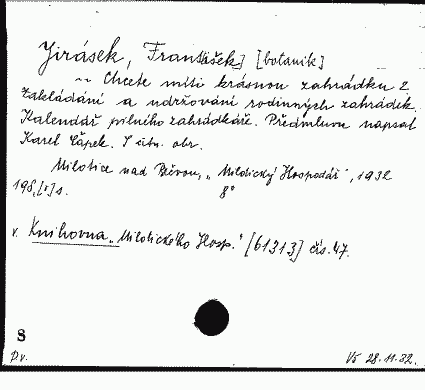 Jirásek, František] [botanik]
~ Chcete míti krásnou zahrádku?
Zakládání a udržování rodinných zahrádek.
Kalendář pilného zahrádkáře. Předmluvu napsal
Karel Čapek. S četn. obr.
Milotice nad Bečvou, „Milotický Hospodář", 1932
198,[1] s. 8°
v. Knihovna „Milotického Hosp." [61313] čís. 47.
S
Dv. 28.11.32.